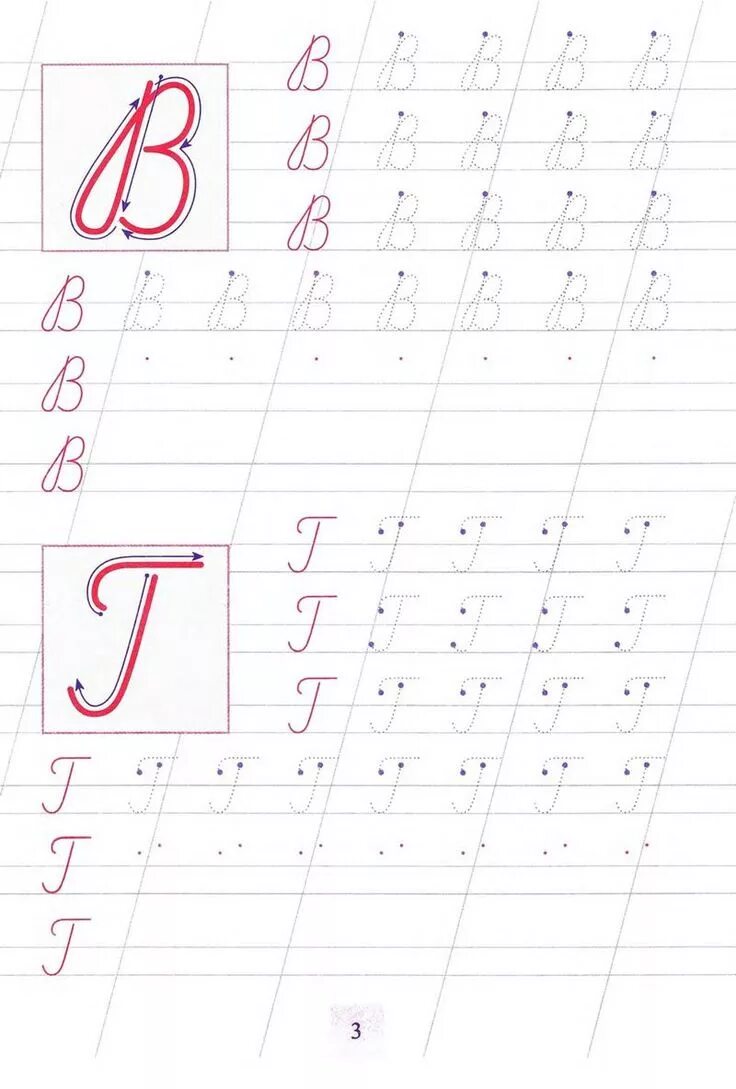 B
B B B B B
B B B B B
B B B B B
B B B B B B B B
B
B
T
T T T T T
T T T T T
T T T T T
T T T T T T T T
T
T
3